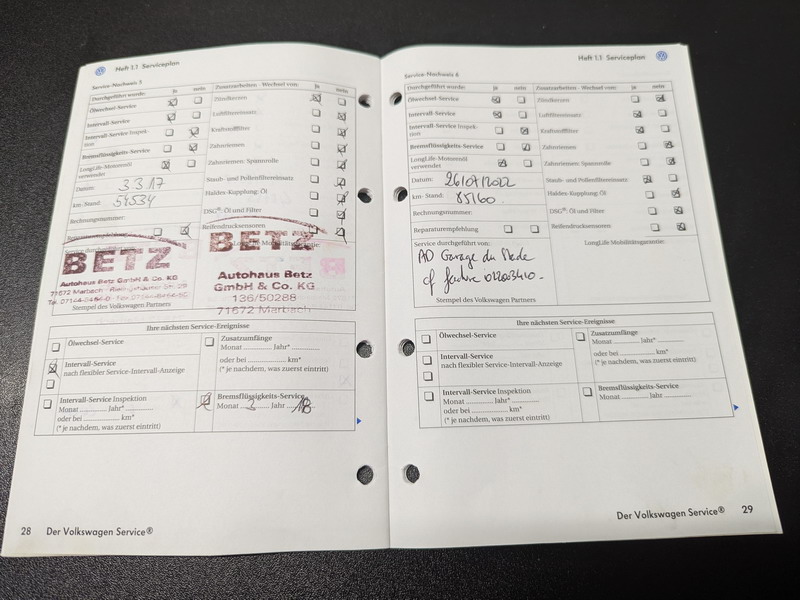 Heft 1.1 Serviceplan
Service-Nachweis 5
Durchgeführt wurde: ja nein
Ölwechsel-Service
Intervall-Service
Intervall-Service Inspek-
tion
Bremsflüssigkeits-Service
LongLife-Motorenöl
verwendet
Datum: 3.3.17
km-Stand: 54534
Rechnungsnummer:
Reparaturempfehlung
Zusatzarbeiten - Wechsel von: ja nein
Zündkerzen
Luftfiltereinsatz
Kraftstofffilter
Zahnriemen
Zahnriemen: Spannrolle
Staub- und Pollenfiltereinsatz
Haldex-Kupplung: Öl
DSG®: Öl und Filter
Reifendrucksensoren
BETZ
Autohaus Betz GmbH & Co. KG
BETZ
Autohaus Betz
GmbH & Co. KG
136/50288
71672 Marbach
Ihre nächsten Service-Ereignisse
Ölwechsel-Service
Intervall-Service
nach flexibler Service-Intervall-Anzeige
Intervall-Service Inspektion
Monat Jahr*
oder bei km*
(* je nachdem, was zuerst eintritt)
Zusatzumfänge
Monat Jahr*
oder bei km*
(* je nachdem, was zuerst eintritt)
Bremsflüssigkeits-Service
Monat 3 Jahr 18
28 Der Volkswagen Service®
Heft 1.1 Serviceplan
Service-Nachweis 6
Durchgeführt wurde: ja nein
Ölwechsel-Service
Intervall-Service
Intervall-Service Inspek-
tion
Bremsflüssigkeits-Service
LongLife-Motorenöl
verwendet
Datum: 26/07/2022
km-Stand: 85160
Rechnungsnummer:
Reparaturempfehlung
Zusatzarbeiten - Wechsel von: ja nein
Zündkerzen
Luftfiltereinsatz
Kraftstofffilter
Zahnriemen
Zahnriemen: Spannrolle
Staub- und Pollenfiltereinsatz
Haldex-Kupplung: Öl
DSG®: Öl und Filter
Reifendrucksensoren
Service durchgeführt von:
LongLife Mobilitätsgarantie:
AD Garage du Stade
Stempel des Volkswagen Partners
Ihre nächsten Service-Ereignisse
Ölwechsel-Service
Intervall-Service
nach flexibler Service-Intervall-Anzeige
Intervall-Service Inspektion
Monat Jahr*
oder bei km*
(* je nachdem, was zuerst eintritt)
Zusatzumfänge
Monat Jahr*
oder bei km*
(* je nachdem, was zuerst eintritt)
Bremsflüssigkeits-Service
Monat Jahr
Der Volkswagen Service® 29